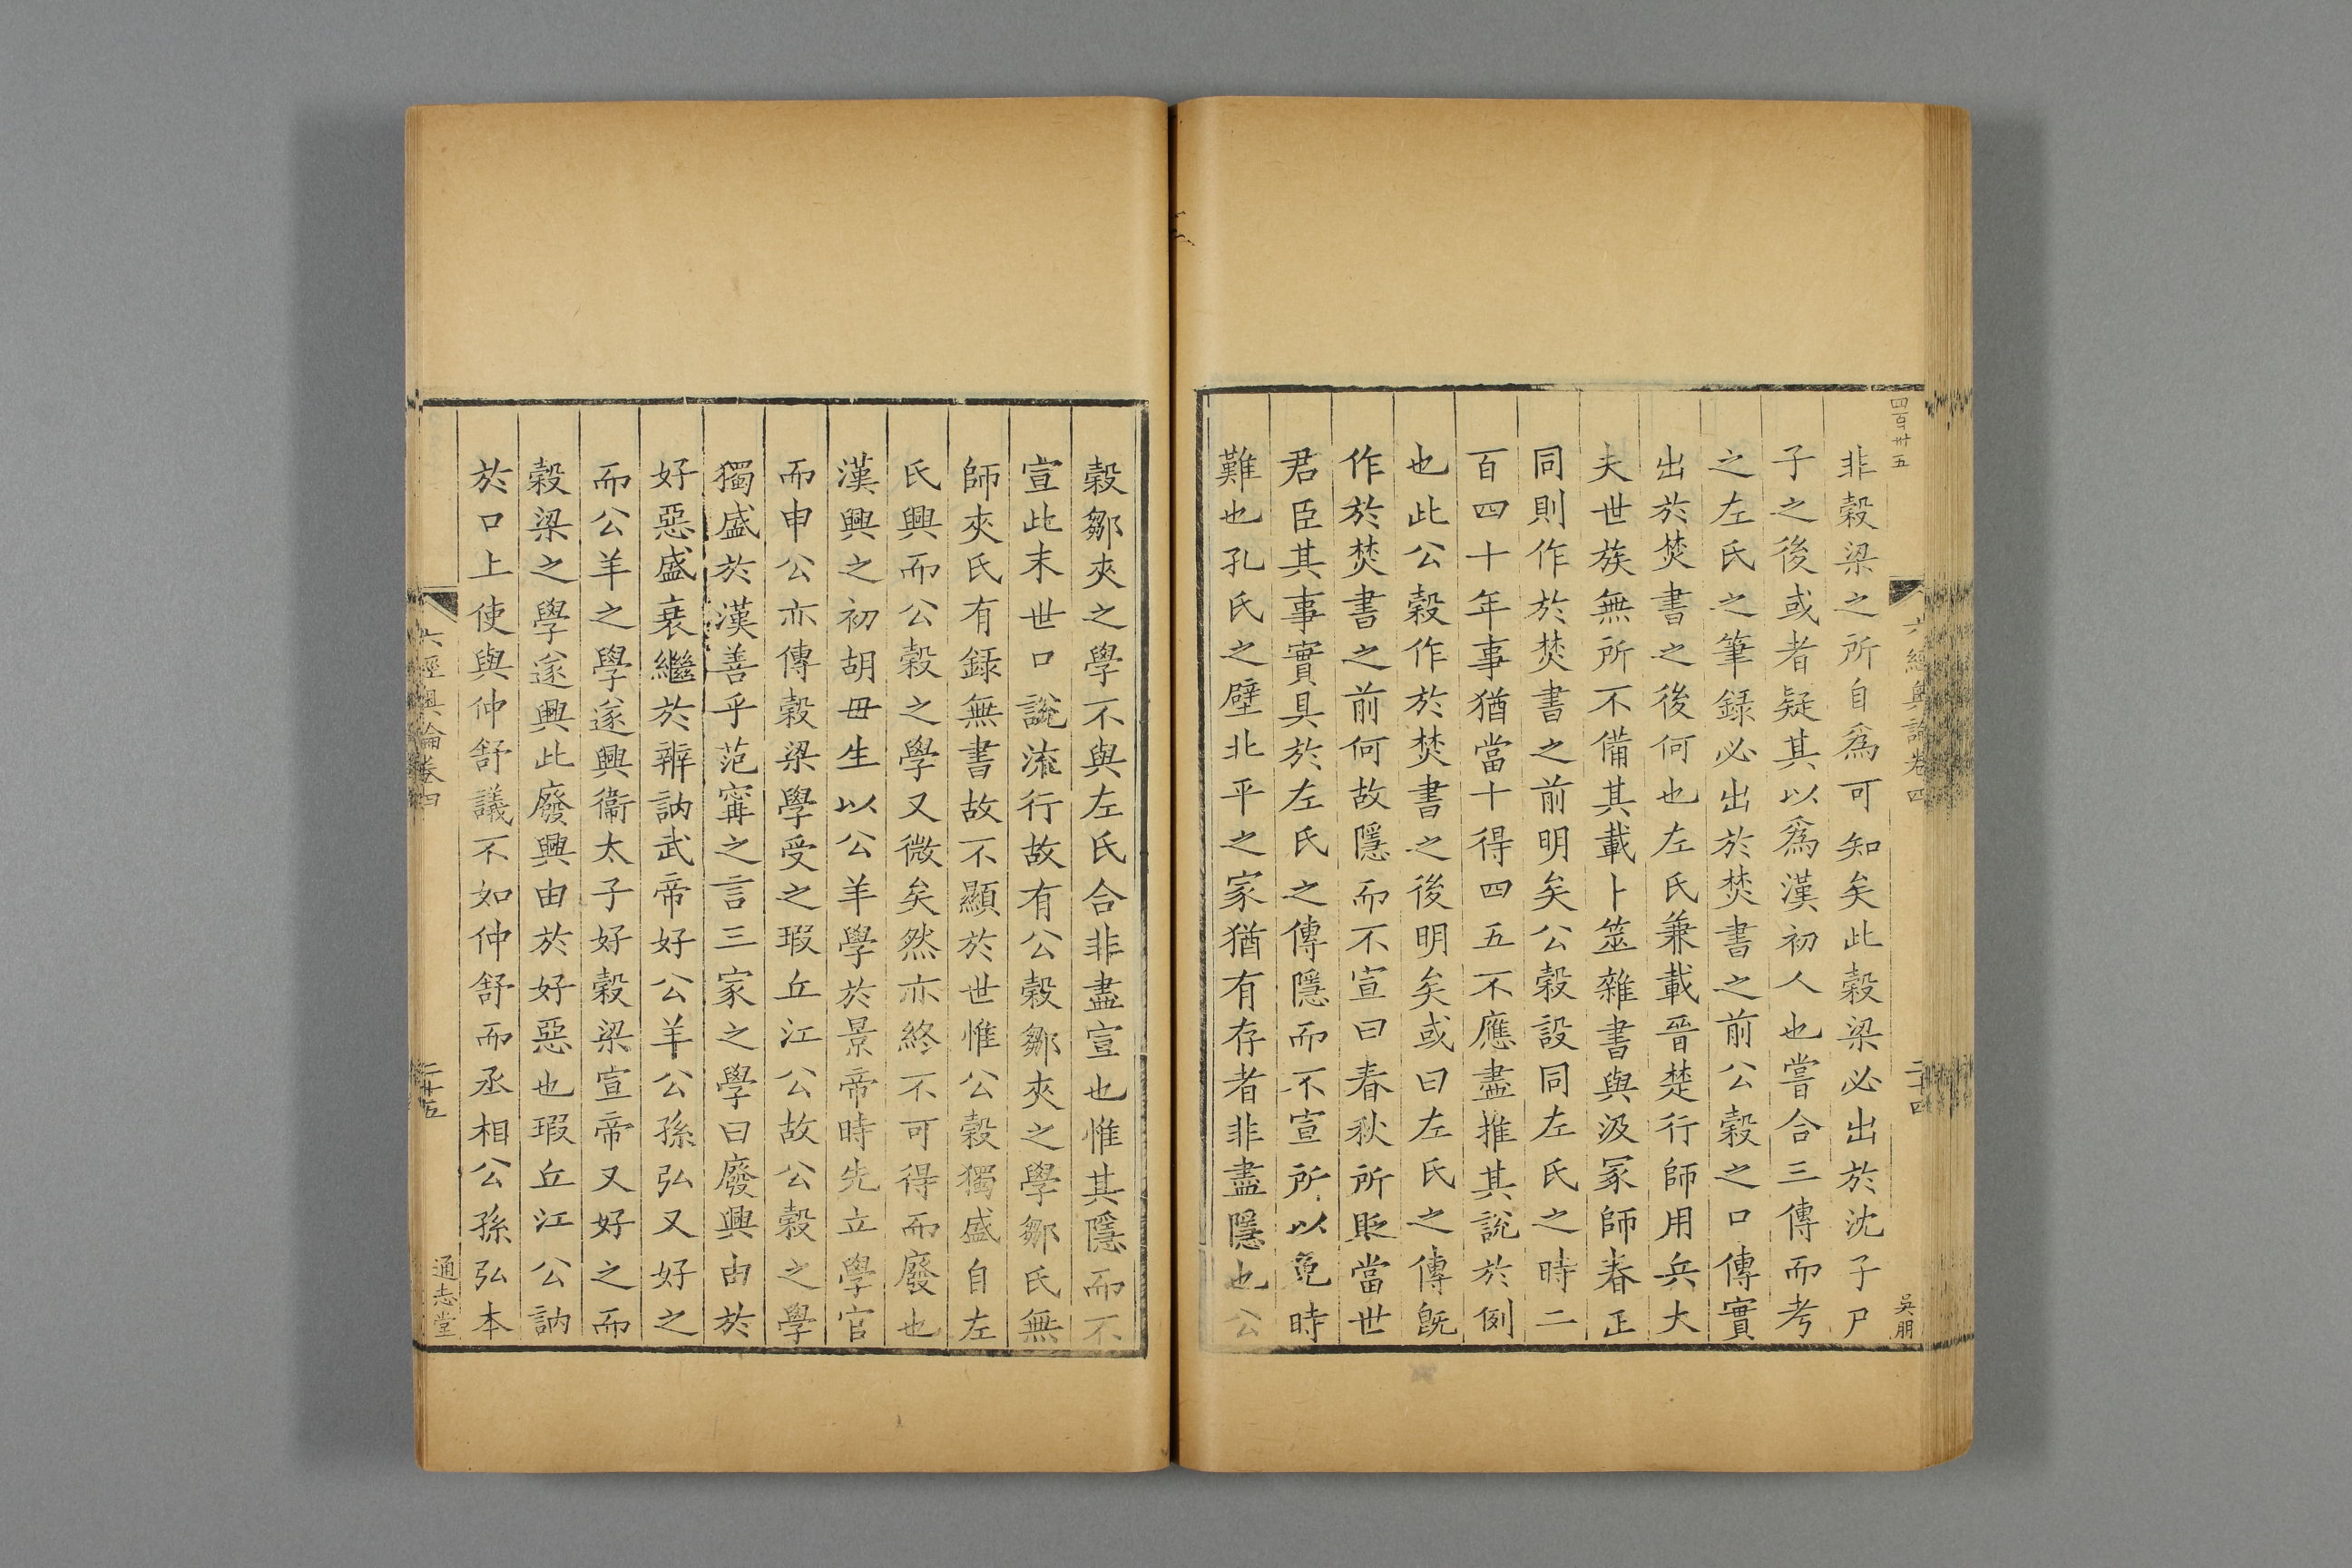 四百卅五
六經奧論卷四
二十四
吳朋
非穀梁之所自爲可知矣此穀梁必出於沈子尸
子之後或者疑其以爲漢初人也嘗合三傳而考
之左氏之筆錄必出於焚書之前公穀之口傳實
出於焚書之後何也左氏兼載晉楚行師用兵大
夫世族無所不備其載卜筮雜書與汲冢師春正
同則作於焚書之前明矣公穀設同左氏之時二
百四十年事猶當十得四五不應盡推其說於例
也此公穀作於焚書之後明矣或曰左氏之傳旣
作於焚書之前何故隱而不宣曰春秋所貶當世
君臣其事實具於左氏之傳隱而不宣所以免時
難也孔氏之壁北平之家猶有存者非盡隱也公
穀鄒夾之學不與左氏合非盡宣也惟其隱而不
宣此末世口說流行故有公穀鄒夾之學鄒氏無
師夾氏有録無書故不顯於世惟公穀獨盛自左
氏興而公穀之學又微矣然亦終不可得而廢也
漢興之初胡毋生以公羊學於景帝時先立學官
而申公亦傳穀梁學受之瑕丘江公故公穀之學
獨盛於漢善乎范甯之言三家之學曰廢興由於
好惡盛衰繼於辨訥武帝好公羊公孫弘又好之
而公羊之學遂興衞太子好穀梁宣帝又好之而
穀梁之學遂興此廢興由於好惡也瑕丘江公訥
於口上使與仲舒議不如仲舒而丞相公孫弘本
六經奧論卷四
二十五
通志堂